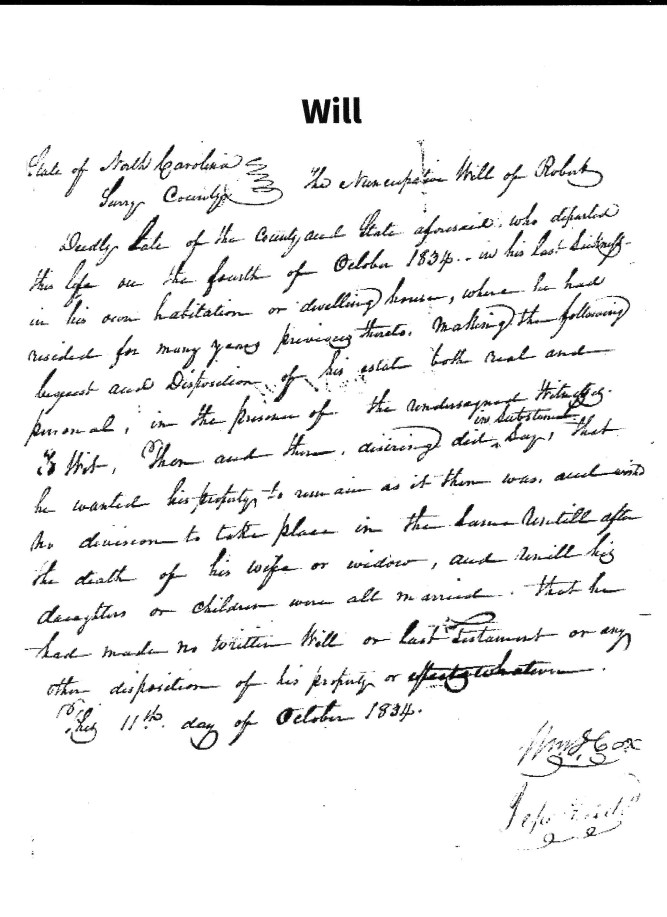 Will
State of North Carolina
Surry County The Nuncupative Will of Robert
Deedly Late of the County and State aforesaid, who departed
this life on the fourth of October 1834.. in his last Sickness
in his own habitation or dwelling house, where he had
resided for many years previous thereto. Making the following
bequest and Disposition of his estate both real and
personal, in the presence of the undersigned Witnesses
To Wit, Then and there, desiring did in Substance Say, that
he wanted his property to remain as it then was, and
no division to take place in the Same Untill after
the death of his wife or widow, and Untill his
daughters or children were all married. that he
had made no written Will or last testament or any
other disposition of his property or effects whatever.
This 11th. day of October 1834.
Wm Cox